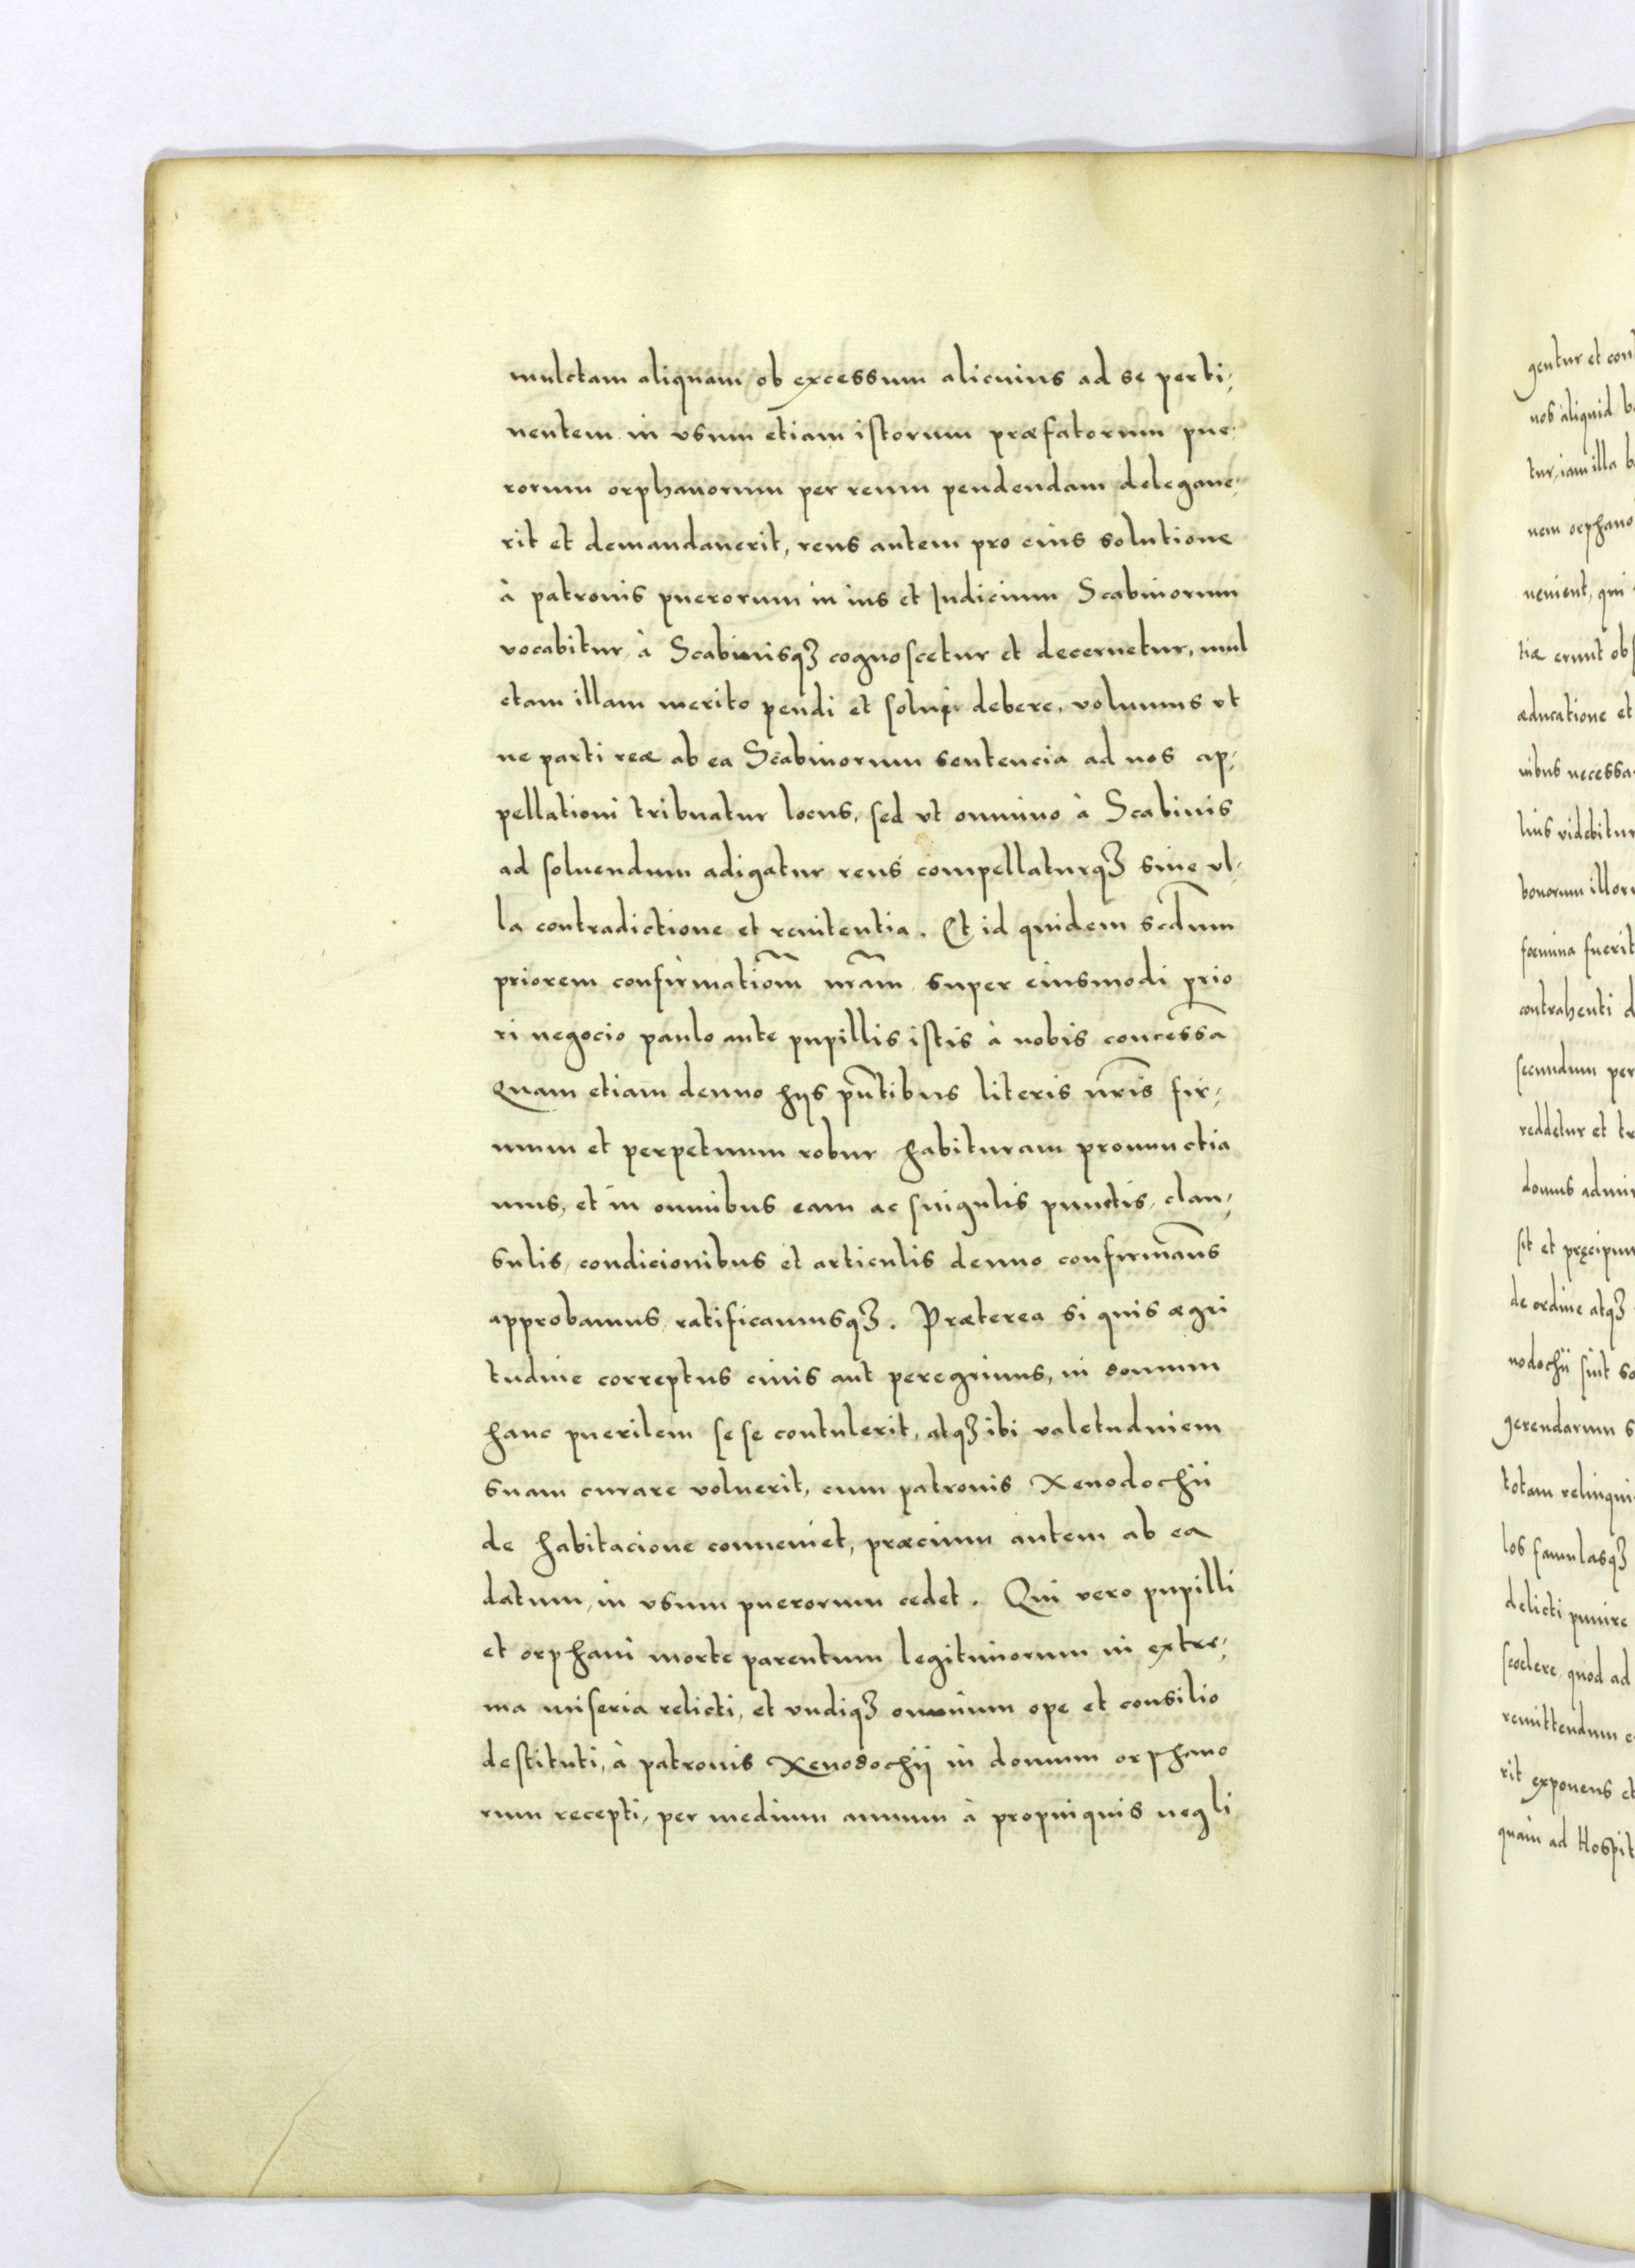 mulctam aliquam ob excessum alicuius ad se perti,
nentem in vsum etiam istorum præfatorum pue,
rorum orphanorum per reum pendendam delegaue,
rit et demandauerit, reus autem pro eius solutione
à patronis puerorum in ius et Iudicium Scabinorum
vocabitur, à Scabinisqꝫ cognoscetur et decernetur, mul
ctam illam merito pendi et solui debere, volumus vt
ne parti reæ ab ea Scabinorum sentencia ad nos ap,
pellationi tribuatur locus, sed vt omnino à Scabinis
ad soluendum adigatur reus compellaturqꝫ sine vl,
la contradictione et renitentia. Et id quidem scdum̄
priorem confirmatiom̄ nrām super eiusmodi prio
ri negocio paulo ante pupillis istis à nobis concessā
Quam etiam denuo hijs pn̄tibus literis nr̄is fir,
mum et perpetuum robur habituram pronunctia
mus, et in omnibus eam ac singulis punctis, clau,
sulis, condicionibus et articulis denuo confirmāus
approbamus, ratificamusqꝫ. Præterea si quis ægri
tudine correptus ciuis aut peregrinus, in domum
hanc puerilem se se contulerit, atqꝫ ibi valetudinem
suam curare voluerit, cum patronis Xenodochii
de habitacione conueniet, præcium autem ab ea
datum, in vsum puerorum cedet. Qui vero pupilli
et orphani morte parentum legitimorum in extre,
ma miseria relicti, et vndiqꝫ omnium ope et consilio
destituti, à patronis Xenodochij in domum orphano
rum recepti, per medium annum à propinquis negli
gentur et con
nos aliquid
tur, iam illa
nem orphano
uenient, qui
tiæ erunt obs
æducatione et
nibus necessa
lius videbitur
bonorum illoru
foemina fuerit
contrahenti d
secundum per
reddetur et tr
domus admi
sit et pręcipuu
de ordine atqꝫ
nodochii sint so
gerendarum s
totam relinqui
los famulasqꝫ
delicti punire
scoelere, quod ad
remittendum e
rit exponens et
quàm ad Hospit